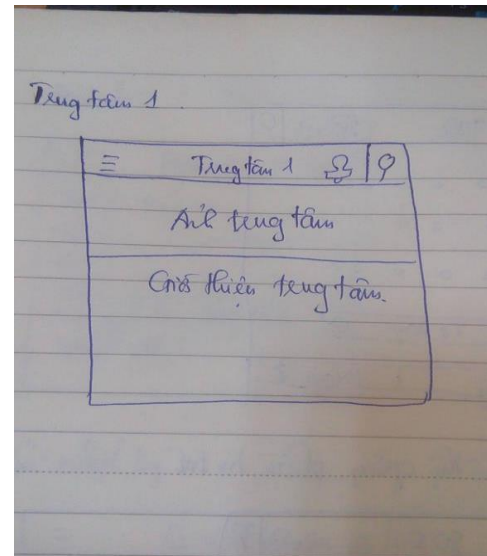 Trung tâm 1
Trung tâm 1
Ảnh trung tâm
Giới thiệu trung tâm.